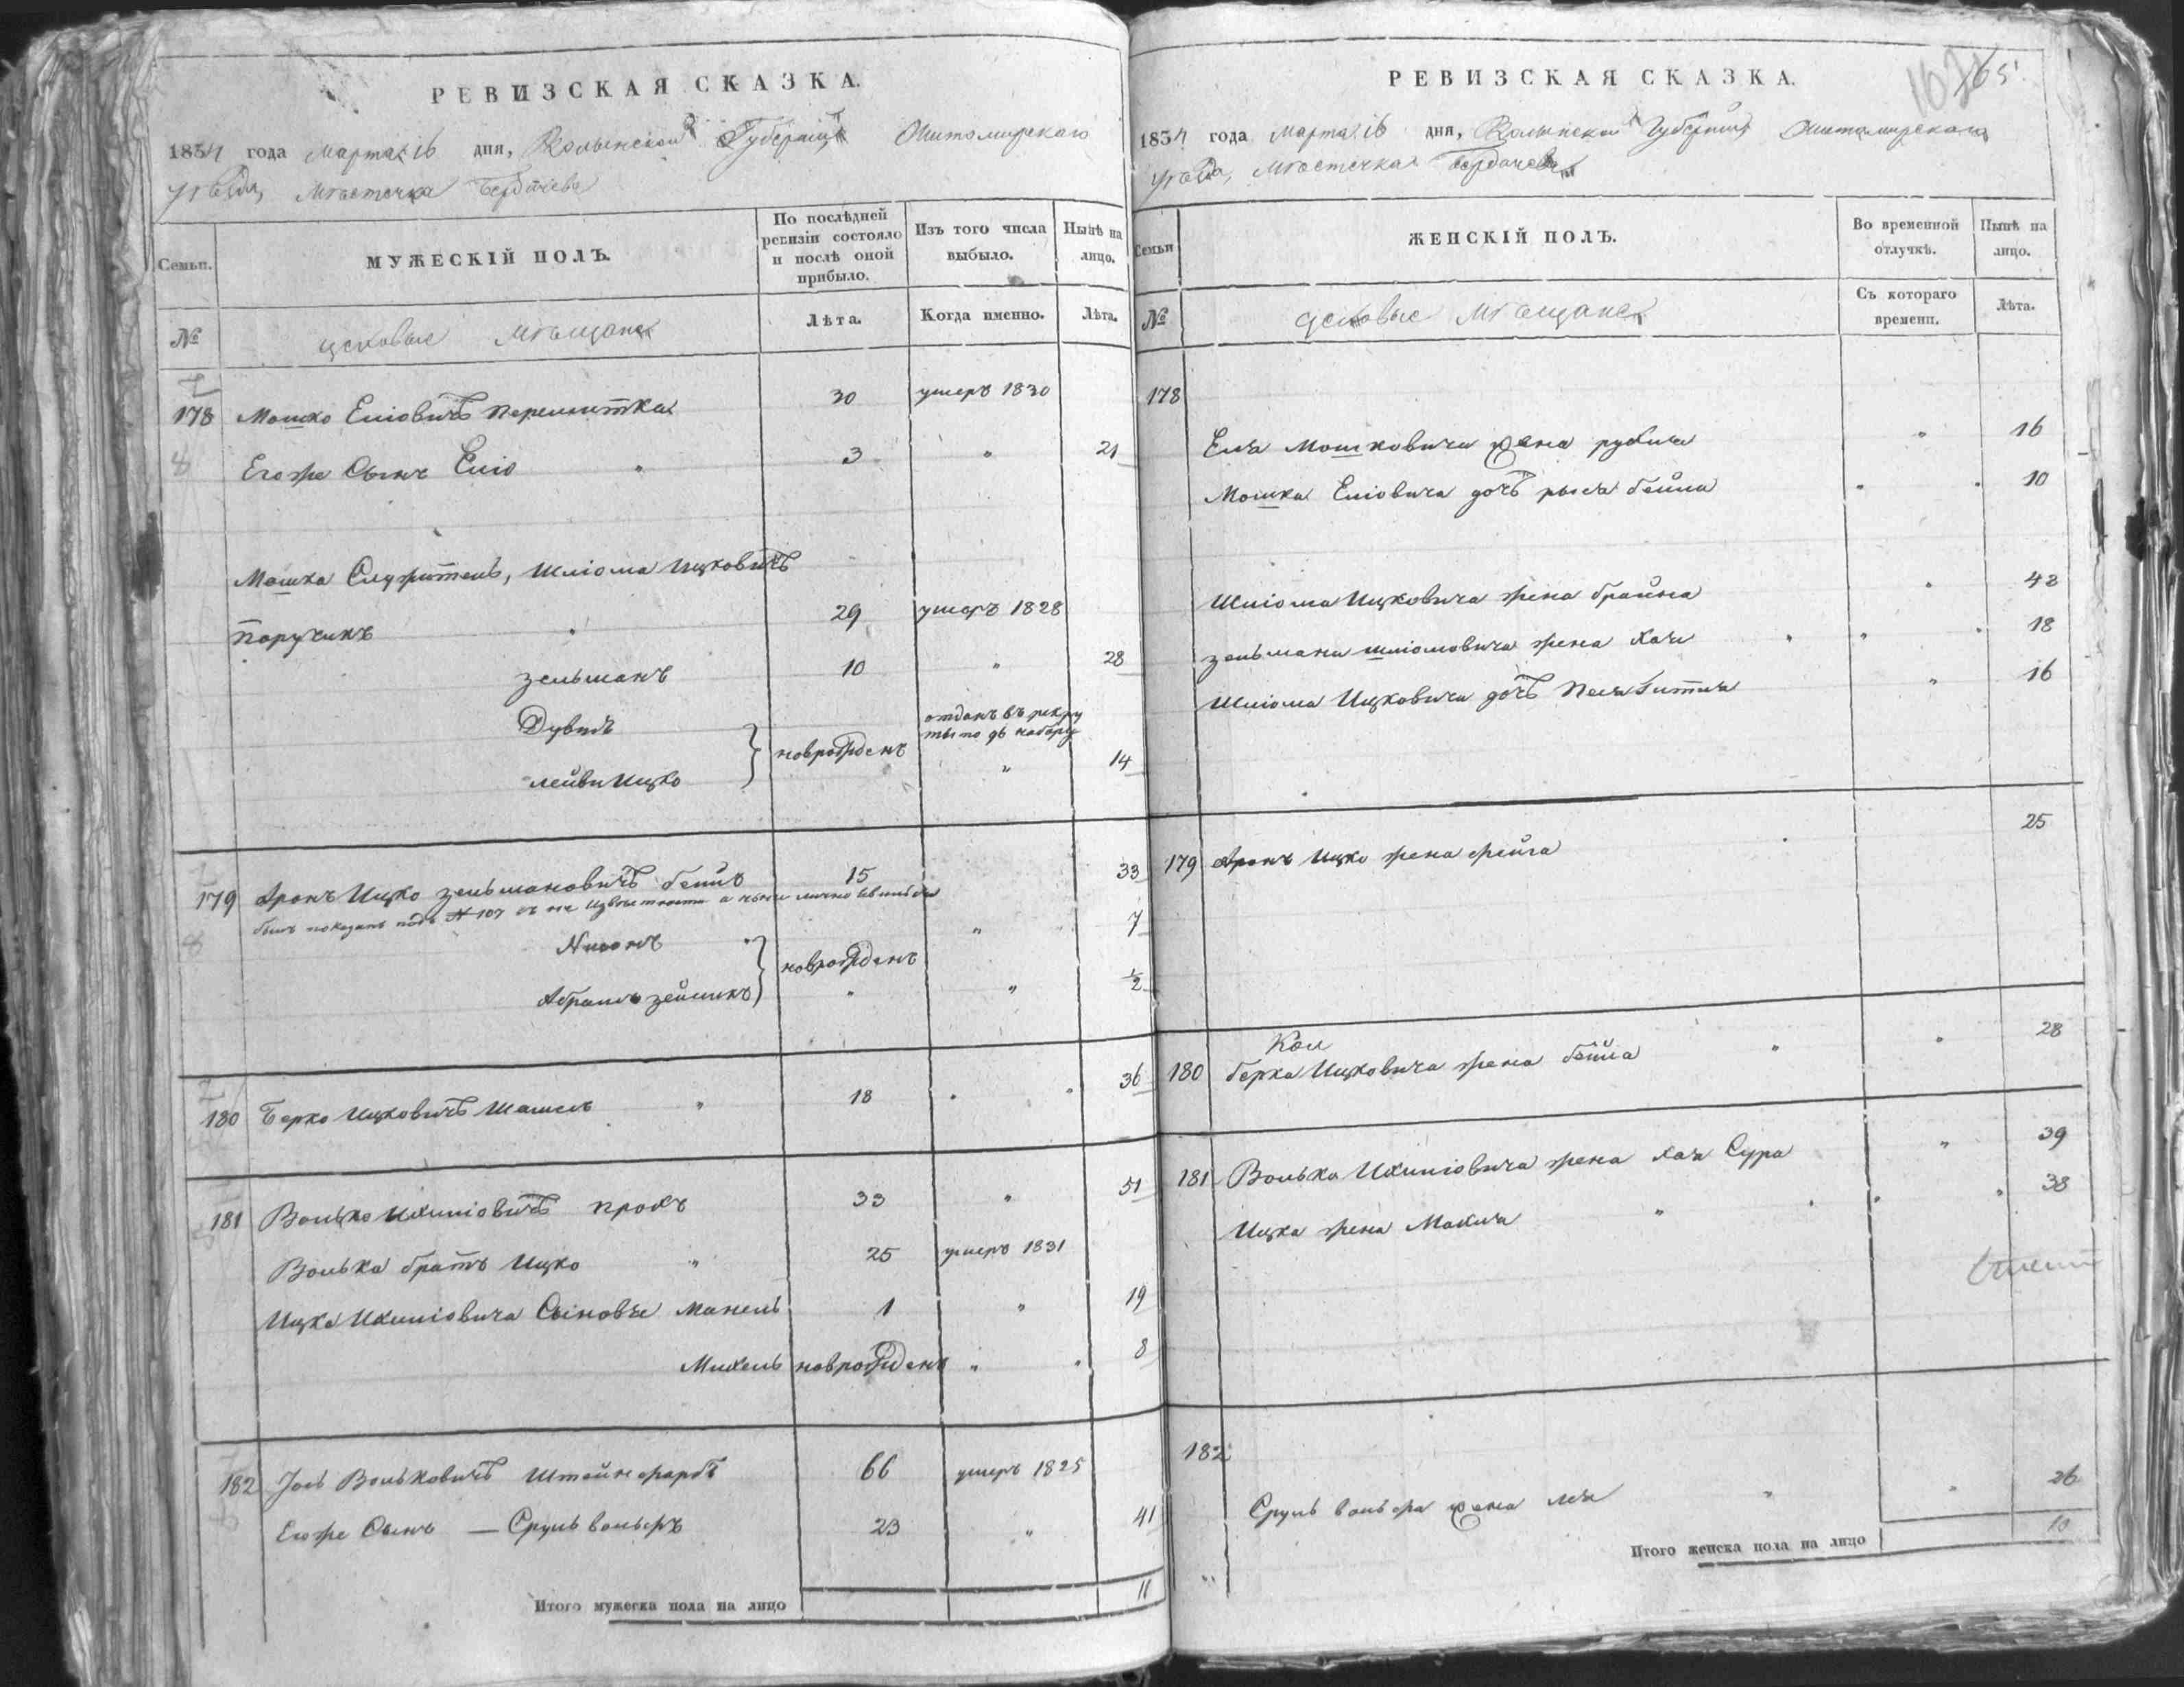 РЕВИЗСКАЯ СКАЗКА.
1834 года Марта 16 дня, Волынской Губернии Житомирскаго
уѣзда, Мѣстечка Бердичева
Семьи.
МУЖЕСКІЙ ПОЛЪ.
По послѣдней ревизіи состояло и послѣ оной прибыло.
Изъ того числа выбыло.
Нынѣ на лицо.
№
цеховые мѣщане
Лѣта.
Когда именно.
Лѣта.
178 Мошко Еліовичъ Перепитка 30 умеръ 1830
Егоже Сынъ Еліо " 3 " 21
Мошка Служитель, Шліома Ицковичъ
Поручикъ " 29 умеръ 1828
зельманъ 10 " 28
Дувидъ
новрожденъ
отданъ въ рекру
ты по 96 набору
лейви Ицко " 14
179 Аронъ Ицко зельмановичъ 15 33
былъ показанъ подъ № 107 въ не извѣстности а нынѣ лично
" 7
новрожденъ
Абрамъ " " ½
180 Берко Ицковичъ " 18 " " 36
181 Волько Ихиліовичъ 33 " 51
Волька братъ Ицко " 25 умеръ 1831
Ицка Ихиліовича Сыновье Манель 1 " 19
Михель новрожденъ " " 8
182 Іось Вольковичъ Штейнфарбъ 66 умеръ 1825
Егоже Сынъ — Сруль вольфъ 23 " 41
Итого мужеска пола на лицо 11
165
РЕВИЗСКАЯ СКАЗКА.
1834 года Марта 16 дня, Волынской Губерніи Житомирскаго
уѣзда, Мѣстечка Бердичева
Семьи
ЖЕНСКІЙ ПОЛЪ.
Во временной отлучкѣ.
Нынѣ на лицо.
№
цеховые мѣщане
Съ котораго времени.
Лѣта.
178
Еля Мошковича жена рухля " 16
Мошка Еліовича дочь рыся бейла " " 10
Шліома Ицковича жена брайна " 48
зельмана шліомовича жена хая " " " 18
Шліома Ицковича дочь Песя " 16
179 Аронъ Ицко жена фейга 25
180 берка Ицковича жена бейла " " 28
181 Волька Ихиліовича жена хая Сура " 39
Ицка жена Малия " " " " 38
182
Сруль вольфа жена лея " " 26
Итого женска пола на лицо 10